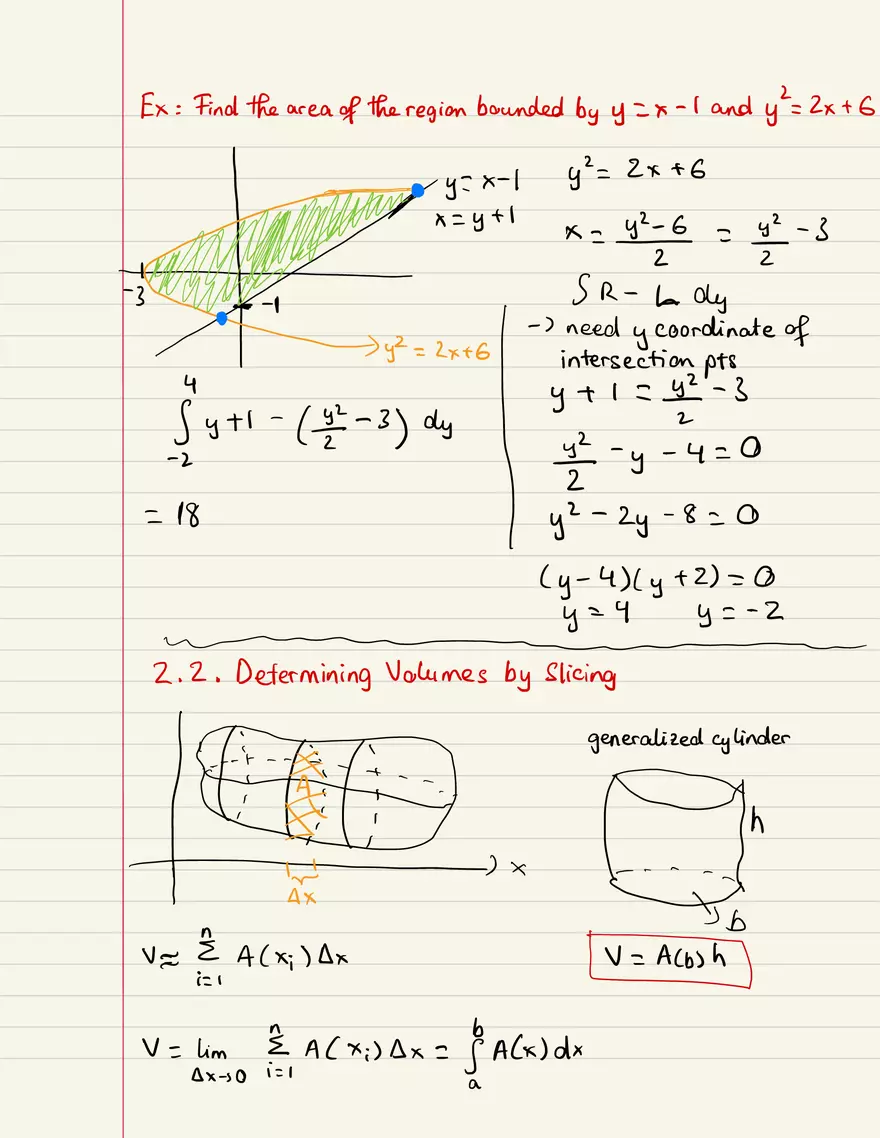 Ex: Find the area of the region bounded by y = x - 1 and y² = 2x + 6
y = x - 1
x = y + 1
-3
-1
y² = 2x + 6
∫₋₂⁴ y + 1 - (y²/2 - 3) dy
= 18
y² = 2x + 6
x = (y² - 6)/2 = y²/2 - 3
∫ R - L dy
-> need y coordinate of
intersection pts
y + 1 = y²/2 - 3
y²/2 - y - 4 = 0
y² - 2y - 8 = 0
(y - 4)(y + 2) = 0
y = 4 y = -2
2.2. Determining Volumes by Slicing
A
Δx
x
generalized cylinder
h
b
V = A(b) h
V ≈ Σᵢ₌₁ⁿ A(xᵢ) Δx
V = lim Δx→0 Σᵢ₌₁ⁿ A(xᵢ) Δx = ∫ₐᵇ A(x) dx